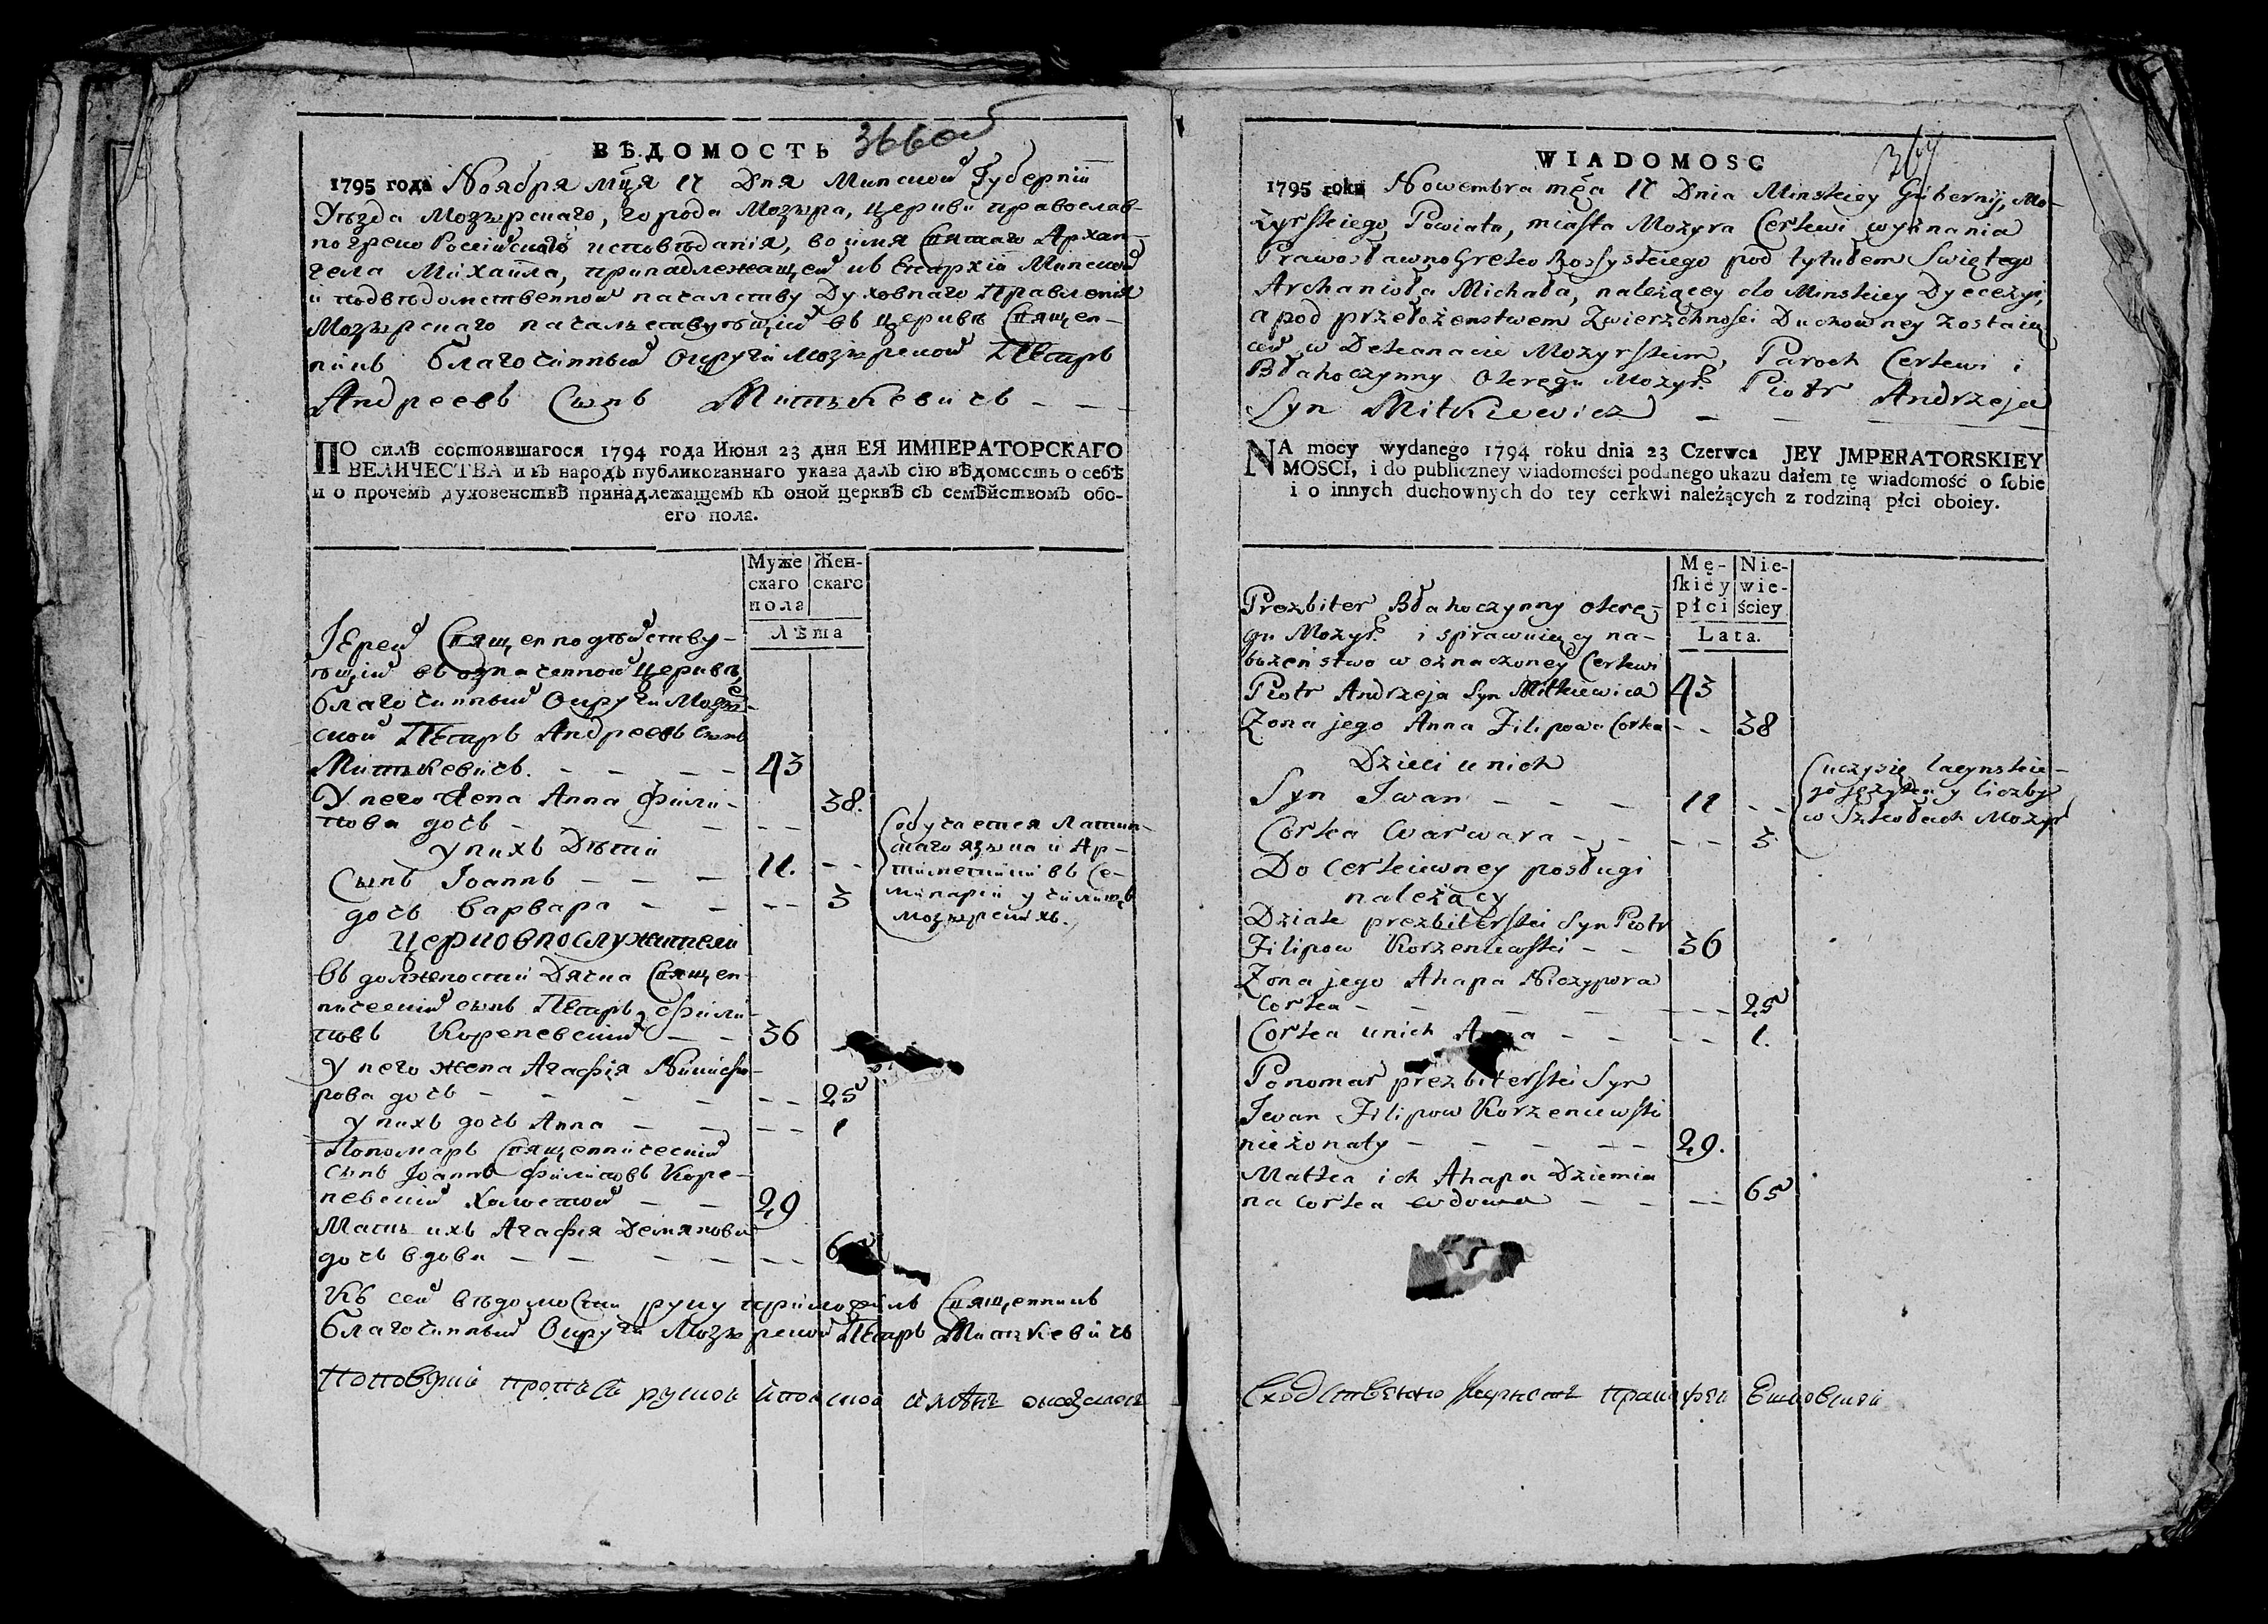 ВѢДОМОСТЬ 366об
1795 года Ноября мця 11 Дня Минской Губернїи
Уѣзда мозырскаго, города мозыря, церкви православ-
но греко Россїйскаго исповѣданїя, во имя Святаго Архан-
гела Михаила, принадлежащей къ Епархїи Минской
и подвѣдомственной началству Духовнаго Правленїя
Мозырскаго началствующїй въ церквѣ Священ-
никъ благочинный Округи мозырской Петръ
Андреевъ Сынъ Митькевичъ - - -
ПО силѣ состоявшагося 1794 года Июня 23 дня ЕЯ ИМПЕРАТОРСКАГО
ВЕЛИЧЕСТВА и въ народъ публикованнаго указа далъ сїю вѣдомость о себѣ
и о прочемъ духовенствѣ принадлежащемъ къ оной церквѣ съ семѣйствомъ обо-
его пола.
Муже
скаго
пола
Жен-
скаго
Лѣта
Іерей Священнодѣйству-
ющїй въ означенной церквѣ,
благочинный Округи Мозыр-
ской Петръ Андреевъ сынъ
Митькевичъ. - - - - 43
У него жена Анна Фили-
пова дочь - - - - - - 38.
У нихъ Дѣти
Сынъ Іоаннъ - - - 11. - -
(обучается латин-
скаго языка и Ар-
тиметики въ Се-
минарїи училищъ
мозырскихъ.
дочь Варвара - - - - 3
Церковнослужители
въ должности Дячка Священ-
ническїй сынъ Петръ Фили-
повъ Корженевскїй - - 36
У него жена Агафїя Никифо-
рова дочь - - - - - - 25
У нихъ дочь Анна - - - - 1
Пономарь Священническїй
сынъ Іоаннъ Филиповъ Корже-
невскїй холостой - - 29
Мать ихъ Агафїя Демянова
дочь вдова - - - - - -
Къ сей вѣдомости руку приложилъ Священникъ
благочинный Округи Мозырской Петръ Митькевичъ
WIADOMOSC 367
1795 roku Nowembra męca 11 Dnia Minskiey Gubernij, Mo-
zyrskiego Powiatu, miasta Mozyra Cerkwi wyznania
PrawosławnoGreko Rossyskiego pod tytułem Swiętego
Archanioła Michała, należącey do Minskiey Dyecezyi,
a pod przełożenstwem Zwierzchnosci Duchowney zostaią
cey w Dekanacie Mozyrskim, Paroch Cerkwi i
Błahoczynny Okregu Mozyr. Piotr Andrzeja
Syn Mitkiewicz - - -
NA mocy wydanego 1794 roku dnia 23 Czerwca JEY JMPERATORSKIEY
MOSCI, i do publiczney wiadomości podanego ukazu dałem tę wiadomość o sobie
i o innych duchownych do tey cerkwi należących z rodziną płci oboiey.
Mę-
skiey
płci
Nie-
wie-
ściey
Lata.
Prezbiter Błahoczynny okrę-
gu Mozyr. i sprawuiący na-
bożeństwo w oznaczoney Cerkwi
Piotr Andrzeja Syn Mitkiewicz 43
Zona jego Anna Filipowa Corka - - 38
Dzieci u nich
Syn Iwan - - - 11 - -
(uczysię łacynskie-
go języka y liczby
w Szkołach Mozyr
Corka Warwara - - - - 3
Do Cerkiewney posługi
należący
Dziak prezbiterski Syn Piotr
Filipow Korzeniewski - - 36
Zona jego Ahapa Niczypora
Corka - - - - - - 25
Corka u nich Anna - - - - 1.
Ponomar prezbiterski Syn
Iwan Filipow Korzeniewski
nieżonaty - - - - - 29.
Matka ich Ahapa Dziemia
na Corka wdowa - - - - 65